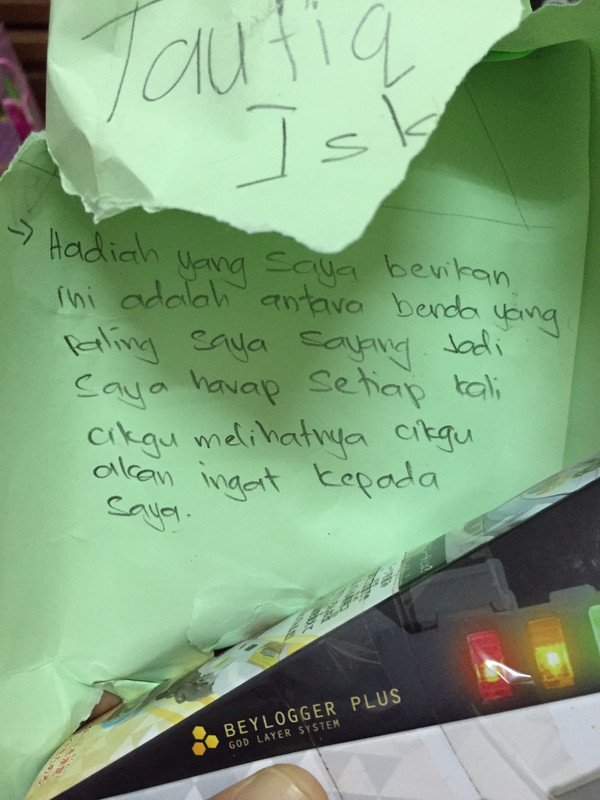 Taufiq
Isk
→ Hadiah yang saya berikan
ini adalah antara benda yang
paling saya sayang. Jadi
saya harap setiap kali
cikgu melihatnya cikgu
akan ingat kepada
saya.
BEYLOGGER PLUS
GOD LAYER SYSTEM